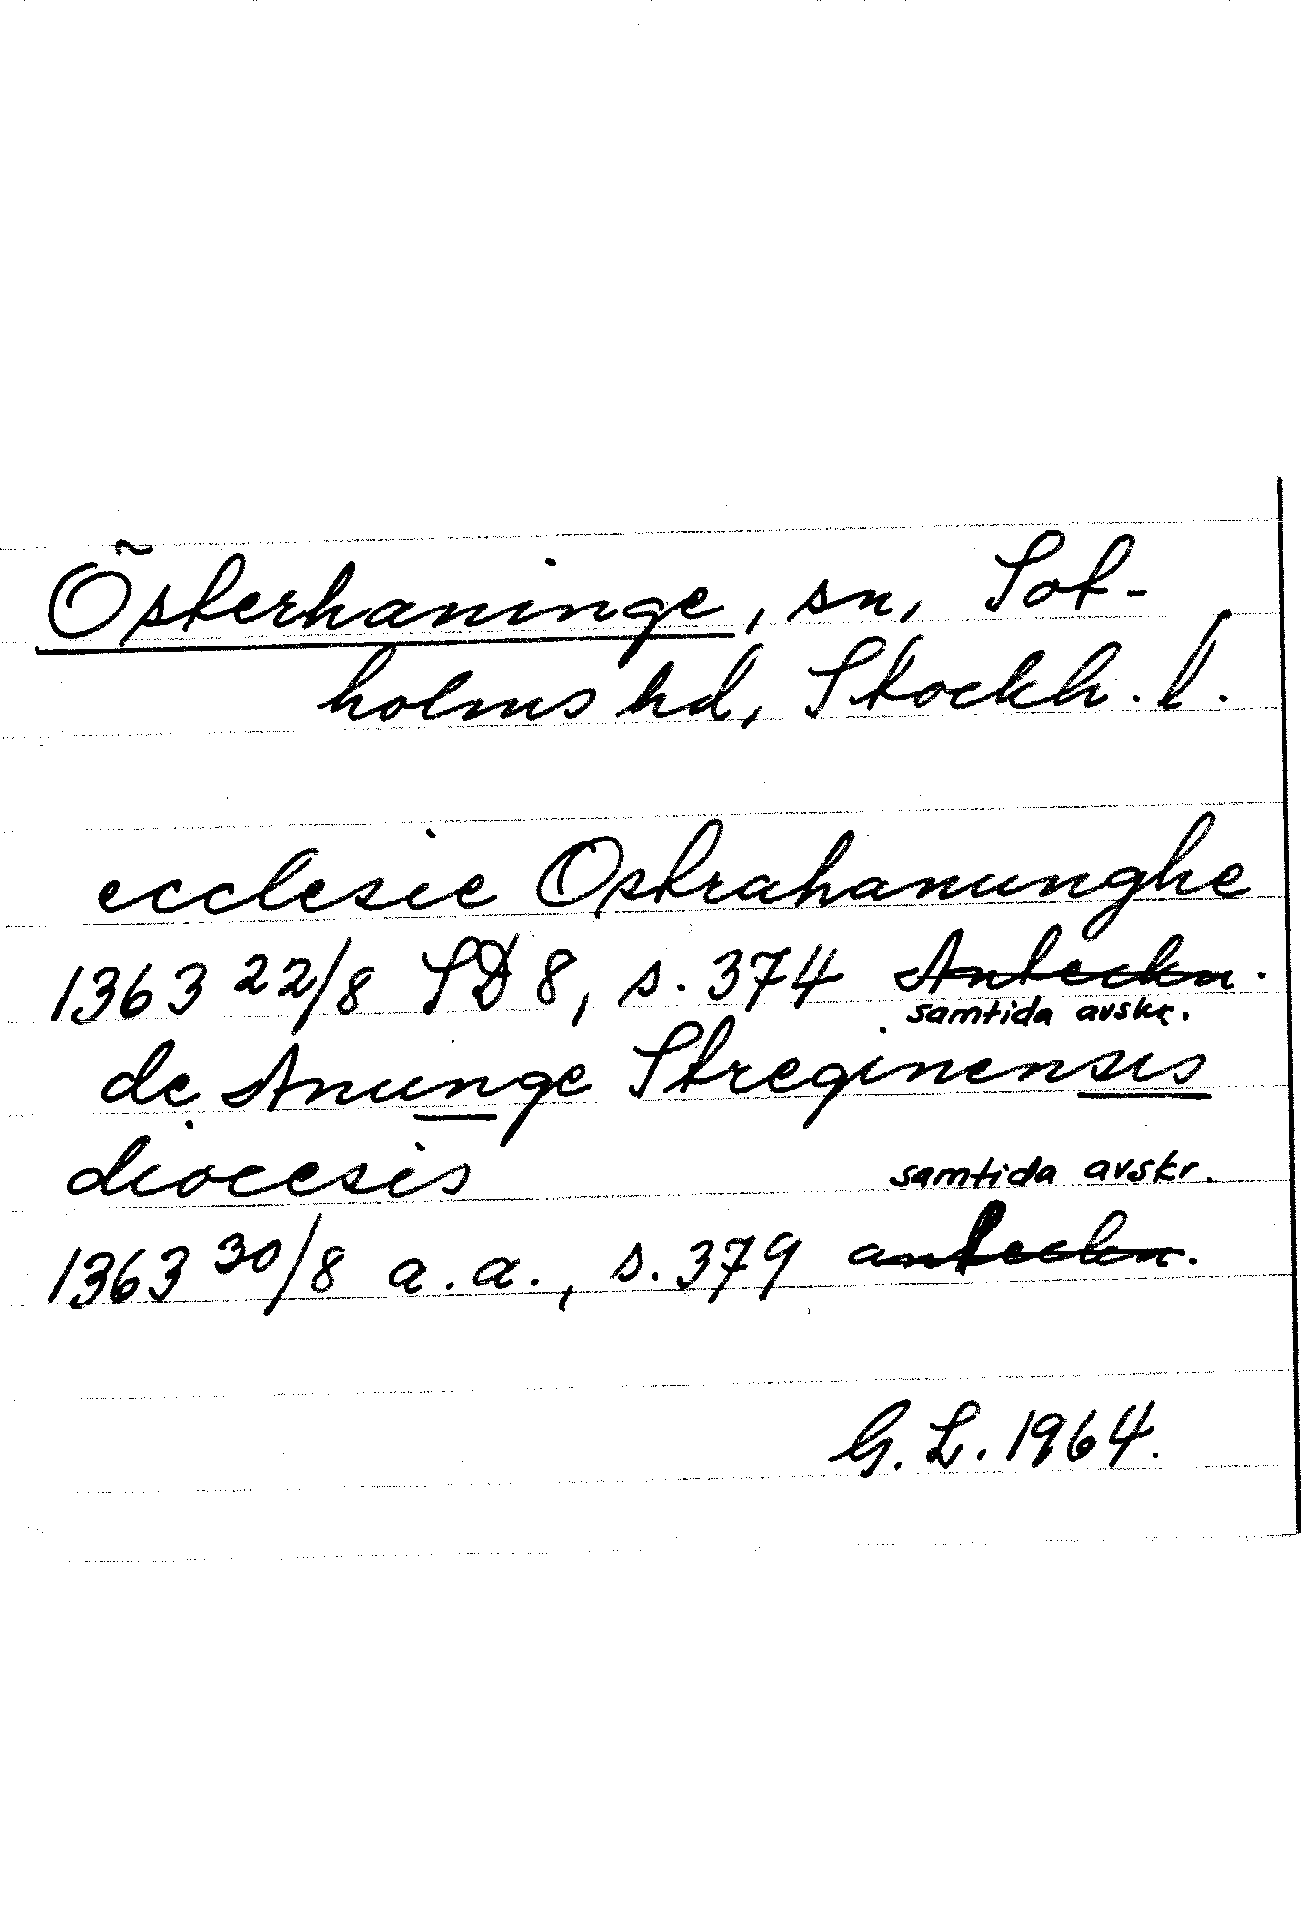 Österhaninge, sn, Sot-
holms hd, Stockh. l.
ecclesie Ostrahanunghe
1363 22/8 SD 8, s. 374 Anteckn.
samtida avskr.
de Anunge Streginensis
diocesis samtida avskr.
1363 30/8 a.a., s. 379 anteckn.
G. L. 1964.